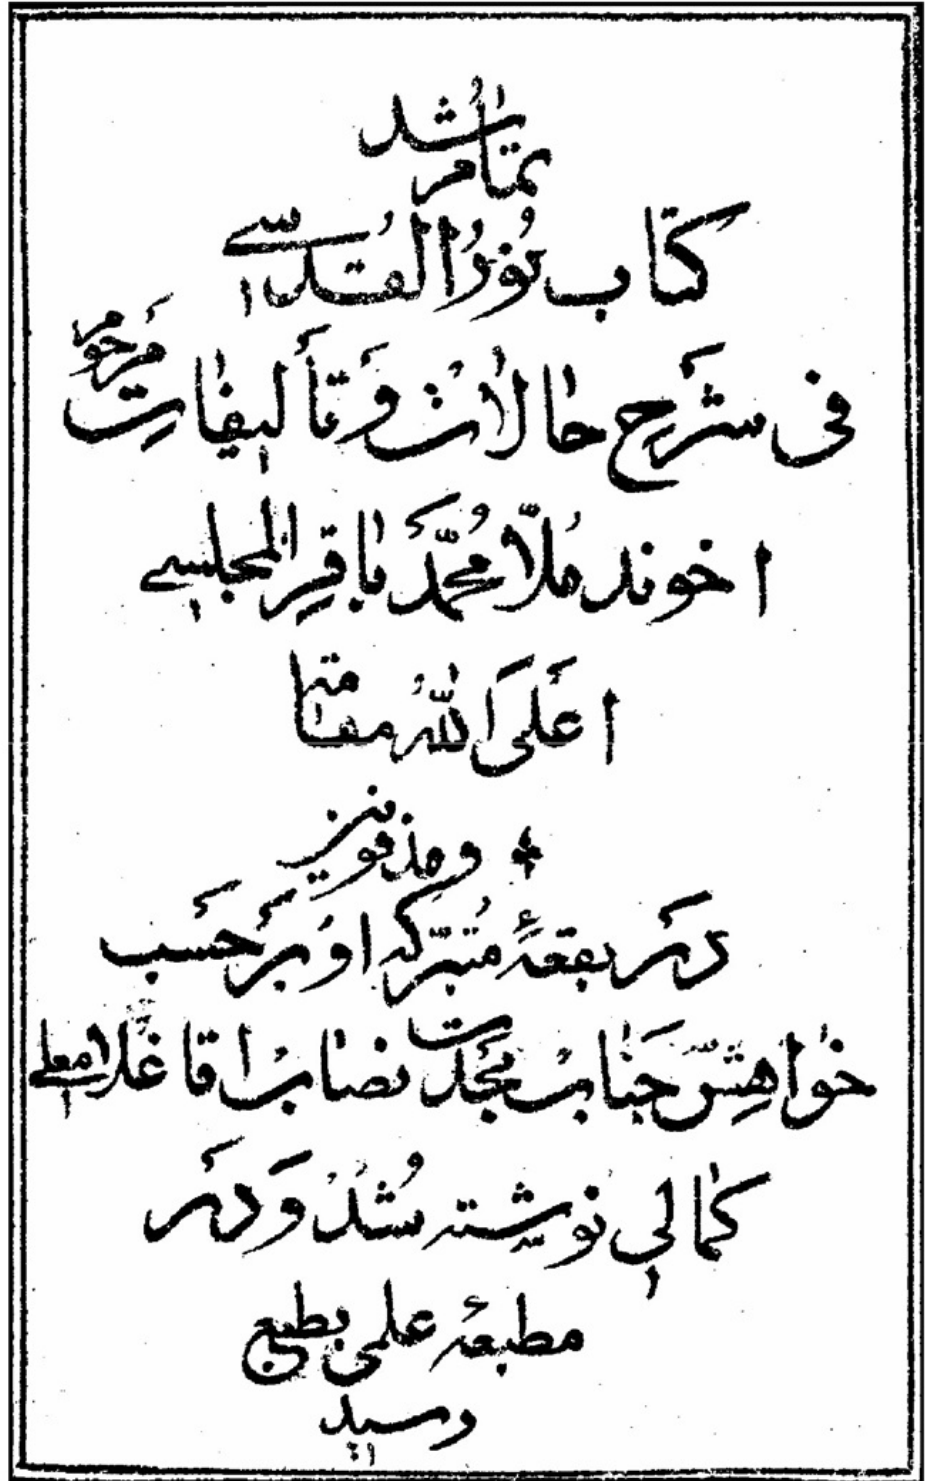 تمام شد
كتاب نُورُ القُدسى
فى شَرح حالات وَ تأليفاتِ مَرحوم
اخوند مُلّا مُحمّد باقِر المجلسى
اعلَى اللهُ مقامَه
در بقعهٔ مُتبرّكه او بَر حَسب
خواهشِ جَناب مَجدت نصاب اقا غلامعلى
كمالى نوشته شُد وَ در
مطبعهٔ علمى بطبع
رسيد